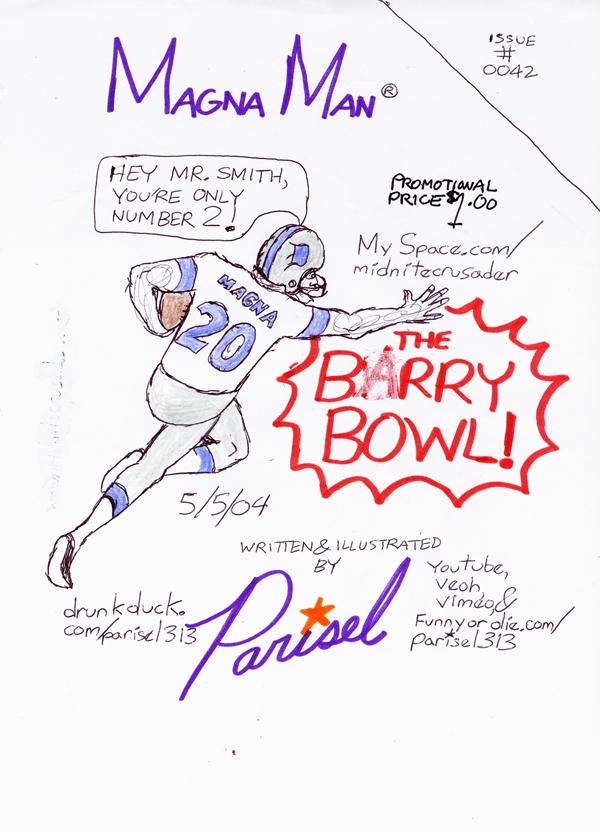 MAGNA MAN®
ISSUE
#
0042
HEY MR. SMITH,
YOU'RE ONLY
NUMBER 2!
PROMOTIONAL
PRICE $1.00
My Space.com/
midnitecrusader
MAGNA
20
THE
BARRY
BOWL!
5/5/04
WRITTEN & ILLUSTRATED
BY
Parisel
drunkduck.
com/parisel313
Youtube,
Veoh,
vimeo,&
Funnyordie.com/
parisel313